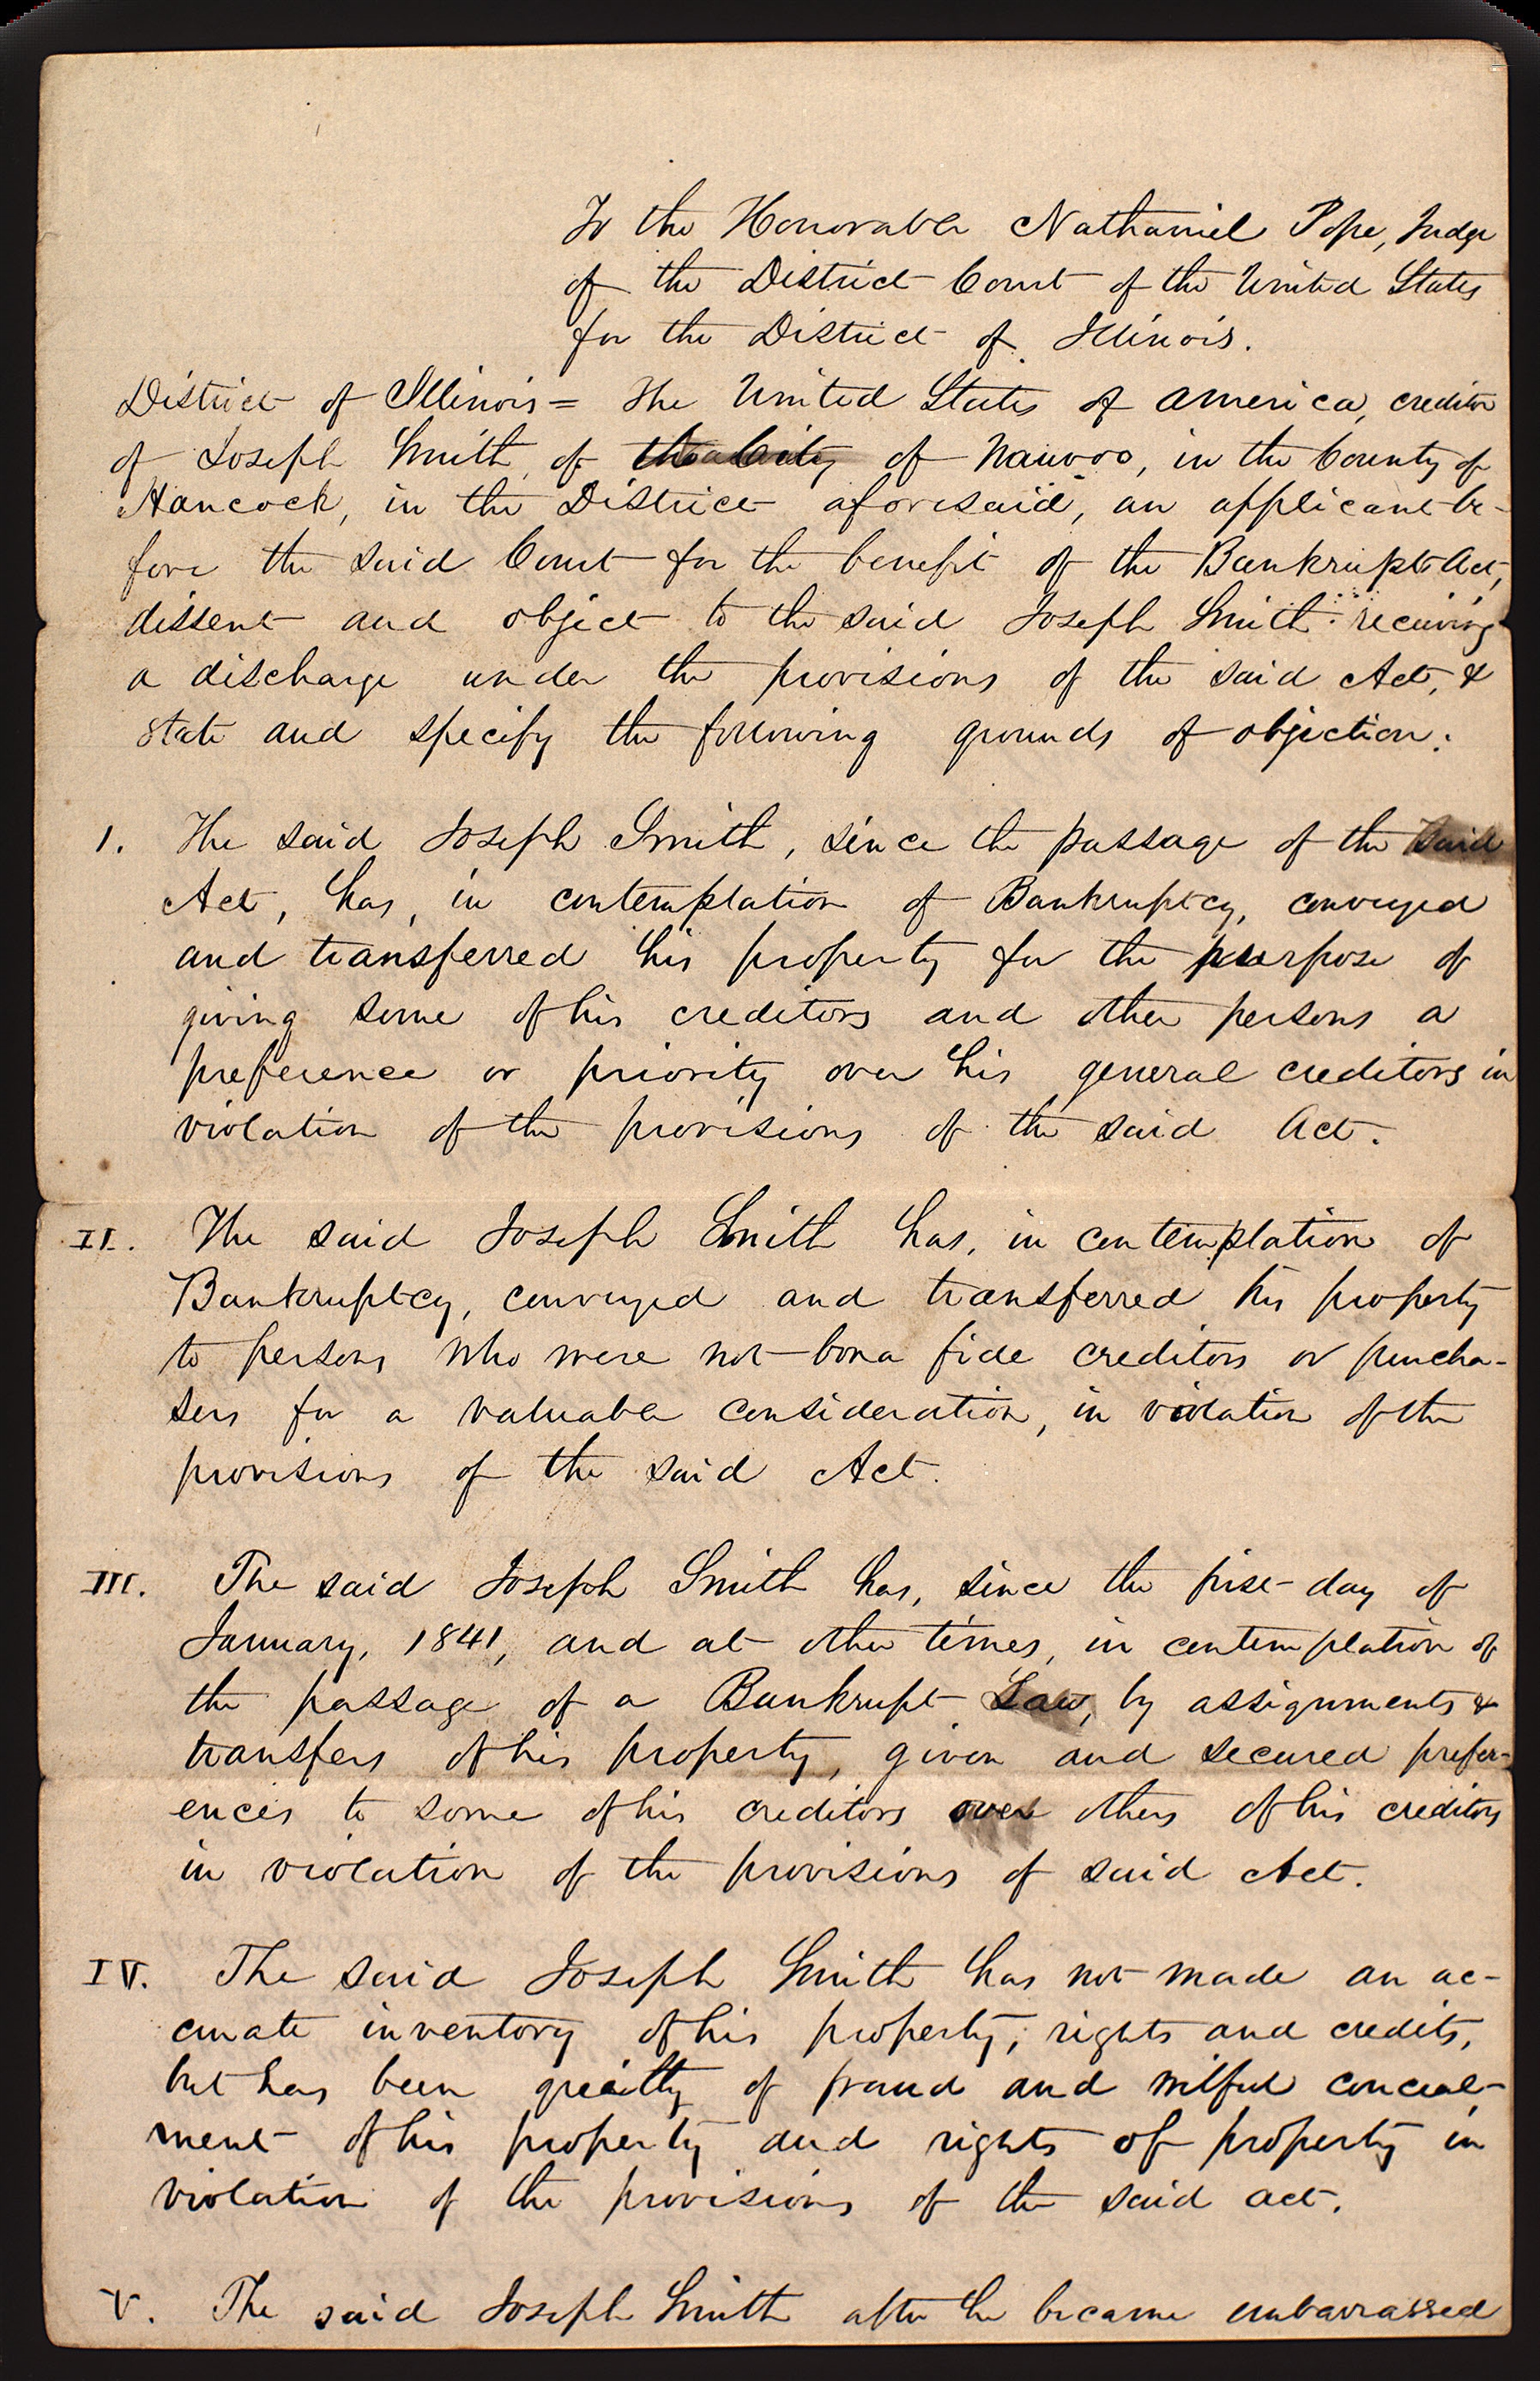 To the Honorable Nathaniel Pope, Judge
of the District Court of the United States
for the District of Illinois.
District of Illinois = The United States of America, creditor
of Joseph Smith, of the City of Nauvoo, in the County of
Hancock, in the District aforesaid, an applicant be-
fore the said Court for the benefit of the Bankrupt Act,
dissent and object to the said Joseph Smith receiving
a discharge under the provisions of the said Act, &
state and specify the following grounds of objection:
1. The said Joseph Smith, since the passage of the said
Act, has, in contemplation of Bankruptcy, conveyed
and transferred his property for the purpose of
giving some of his creditors and other persons a
preference or priority over his general creditors in
violation of the provisions of the said Act.
II. The said Joseph Smith has, in contemplation of
Bankruptcy, conveyed and transferred his property
to persons who were not bona fide creditors or purcha-
sers for a valuable consideration, in violation of the
provisions of the said Act.
III. The said Joseph Smith has, since the first day of
January, 1841, and at other times, in contemplation of
the passage of a Bankrupt Law, by assignments &
transfers of his property, given and secured prefer-
ences to some of his creditors over others of his creditors
in violation of the provisions of said Act.
IV. The said Joseph Smith has not made an ac-
curate inventory of his property, rights and credits,
but has been guilty of fraud and wilful conceal-
ment of his property and rights of property in
violation of the provisions of the said act.
V. The said Joseph Smith after he became embarrassed